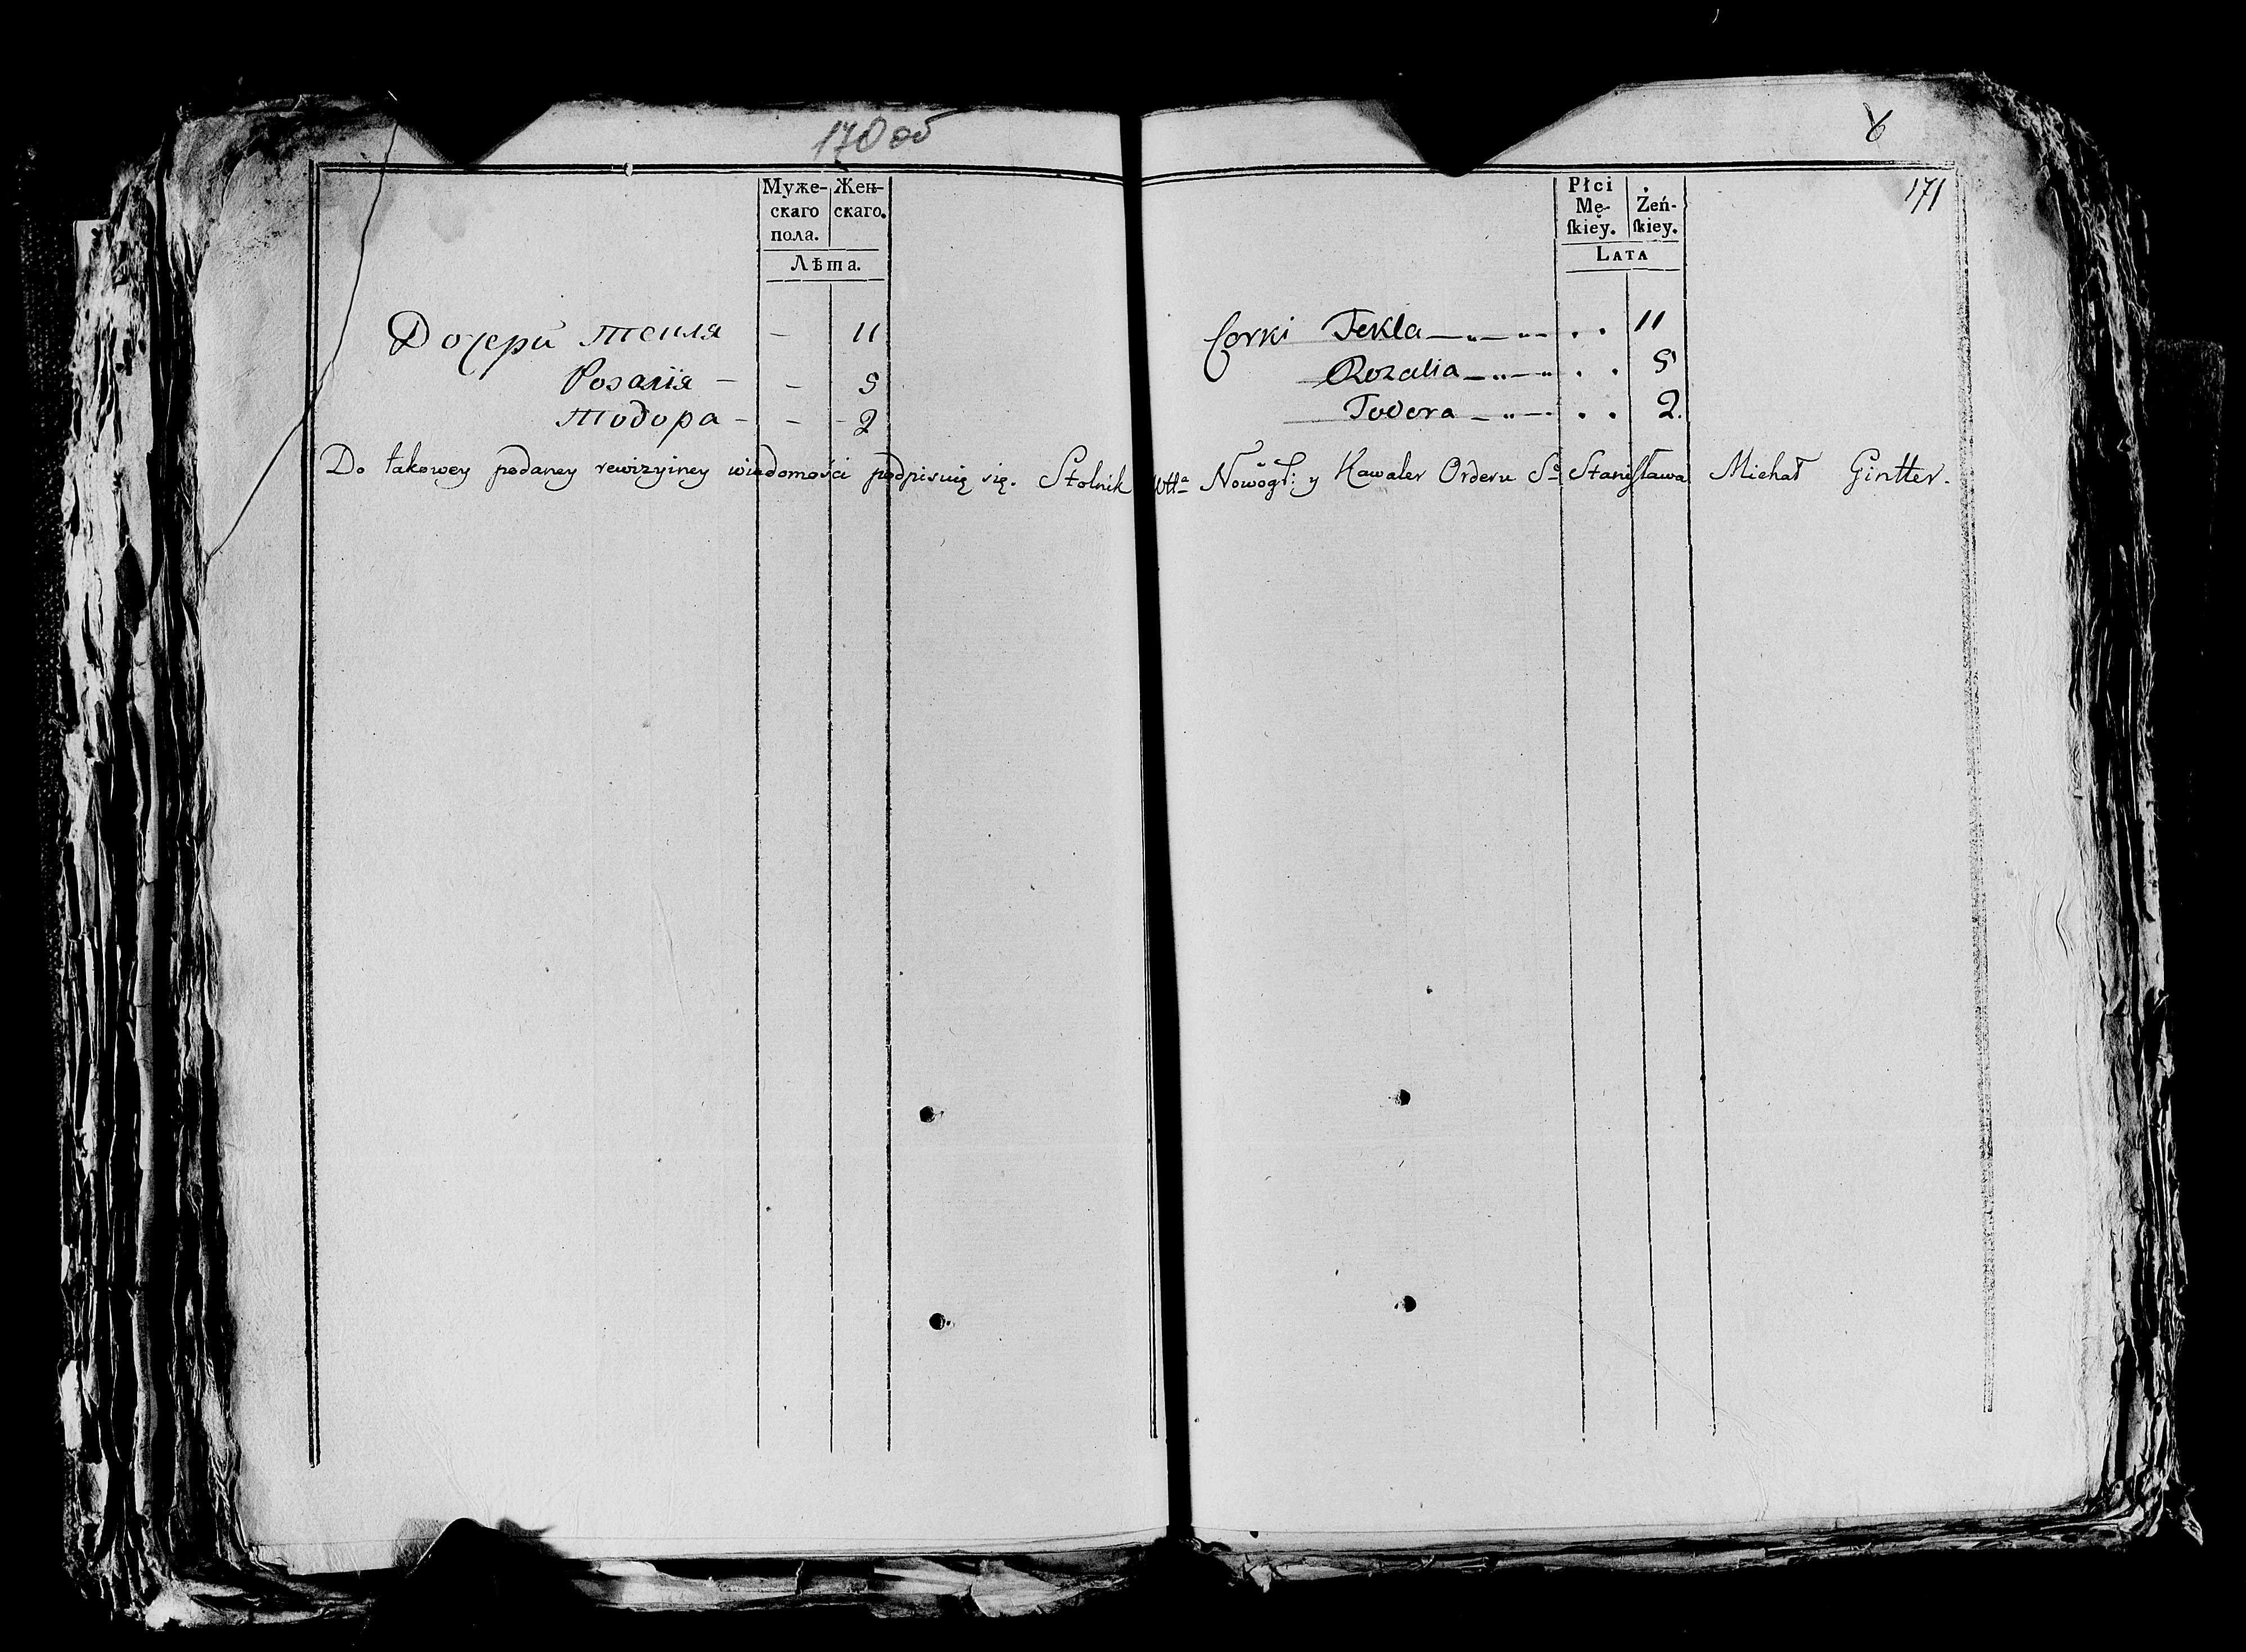 170 об
Муже-
скаго
пола.
Жен-
скаго.
Лѣта.
Дочери Текля - 11
Розалія - - 5
Тодора - - - 2
6
171
Płci
Mę-
ſkiey.
Żeń-
ſkiey.
LATA
Corki Tekla 11
Rozalia 5
Todora 2.
Do takowey podaney rewizyiney wiadomości podpisuię się. Stolnik Wttа Nowogł: y Kawaler Orderu Sº Stanisława Michał Gintter.